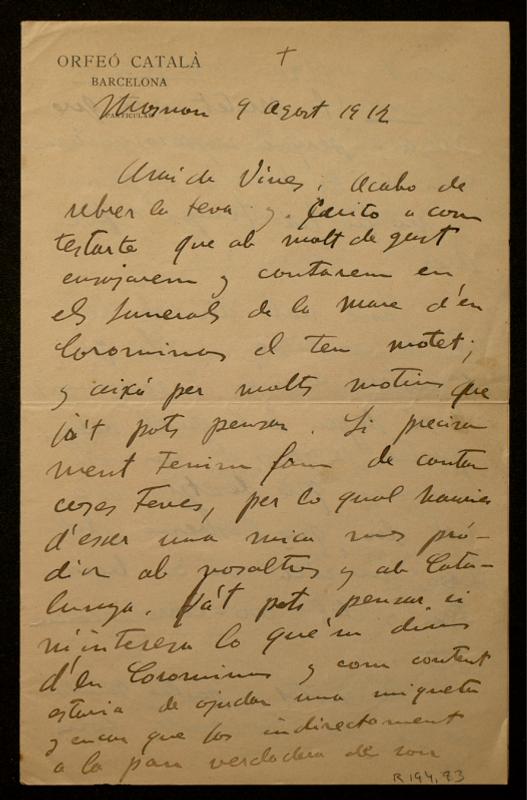 ORFEÓ CATALÀ
BARCELONA
PARTICULAR
9 Agost 1912
Amic Vives: Acabo de
rebrer la teva y cuito a con
testarte que ab molt de gust
ensajarem y cantarem en
els funerals de la mare d'en
Corominas el teu motet;
y aixó per molts motius que
ja't pots pensar. Si precisa
ment tenim fam de cantar
coses teves, per lo qual hauries
d'esser una mica mes pró-
dic ab nosaltres y ab Cata-
lunya. Ja't pots pensar si
m'interesa lo que'm dius
d'en Corominas y com content
estaria de ajudar una miqueta
y encar que fos indirectament
a la pau verdadera de son
R 194, 93